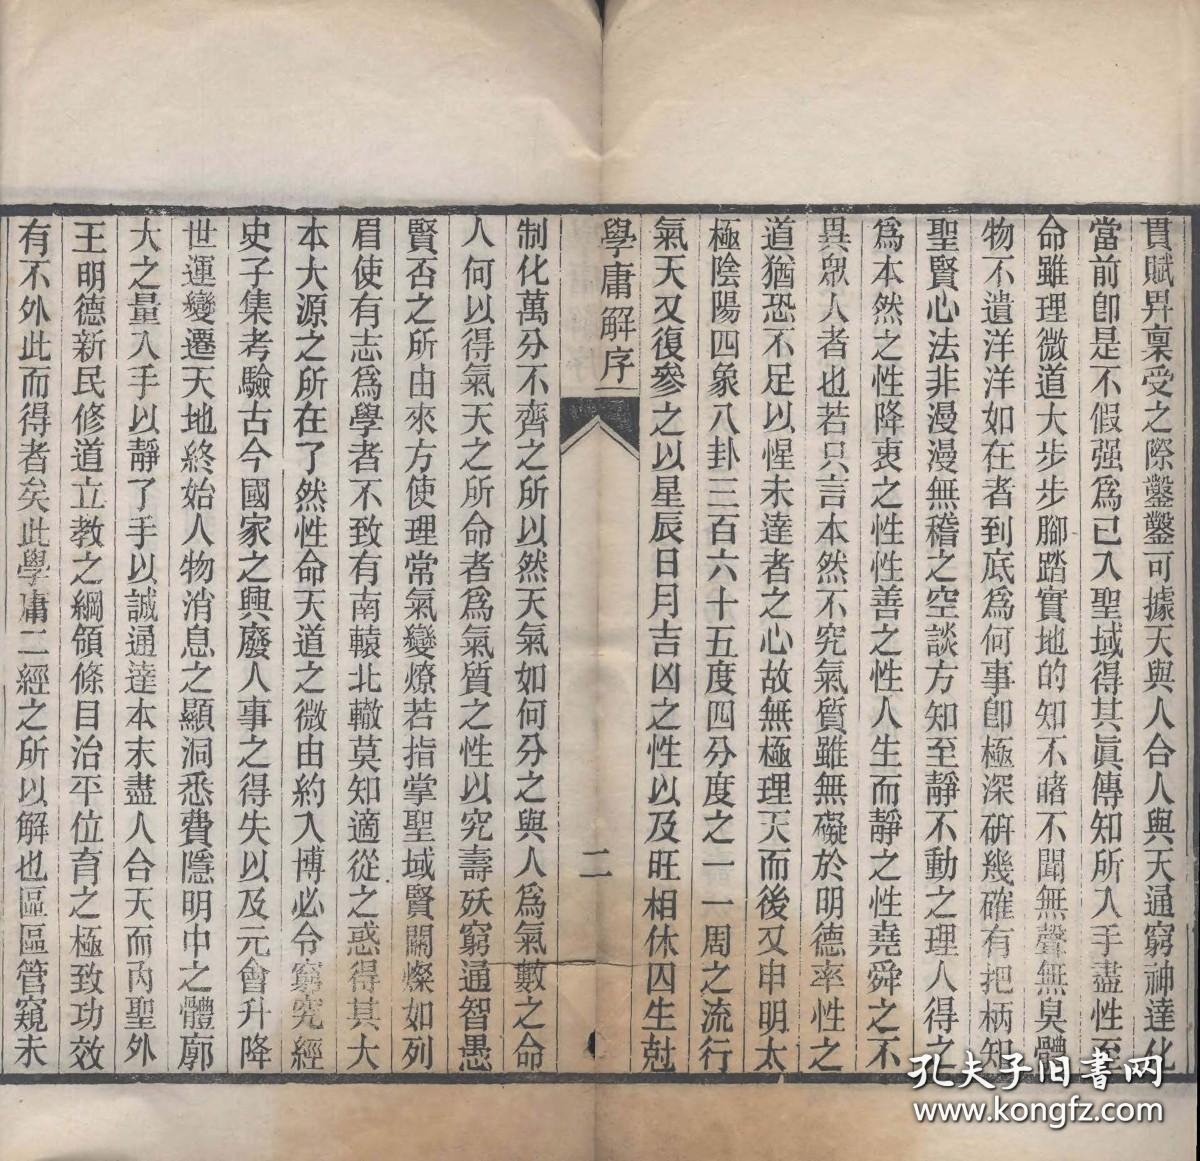 貫賦畀稟受之際鑿鑿可據天與人合人與天通窮神達化
當前卽是不假强爲已入聖域得其眞傳知所入手盡性至
命雖理微道大步步腳踏實地的知不睹不聞無聲無臭體
物不遺洋洋如在者到底爲何事卽極深硏幾確有把柄知
聖賢心法非漫漫無稽之空談方知至靜不動之理人得之
爲本然之性降衷之性性善之性人生而靜之性堯舜之不
異眾人者也若只言本然不究氣質雖無礙於明德率性之
道猶恐不足以惺未達者之心故無極理天而後又申明太
極陰陽四象八卦三百六十五度四分度之一一周之流行
氣天又復參之以星辰日月吉凶之性以及旺相休囚生尅
學庸解序
二
制化萬分不齊之所以然天氣如何分之與人爲氣數之命
人何以得氣天之所命者爲氣質之性以究壽殀窮通智愚
賢否之所由來方使理常氣變燎若指掌聖域賢關燦如列
眉使有志爲學者不致有南轅北轍莫知適從之惑得其大
本大源之所在了然性命天道之微由約入博必令窮究經
史子集考驗古今國家之興廢人事之得失以及元會升降
世運變遷天地終始人物消息之顯洞悉費隱明中之體廓
大之量入手以靜了手以誠通達本末盡人合天而內聖外
王明德新民修道立教之綱領條目治平位育之極致功效
有不外此而得者矣此學庸二經之所以解也區區管窺未
孔夫子旧書网
www.kongfz.com